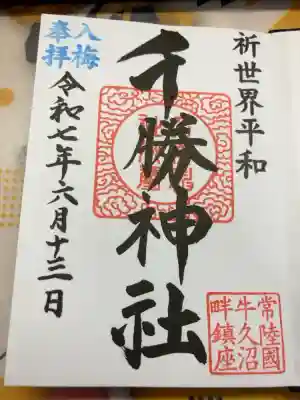 祈世界平和
千勝神社
入梅
奉拝
令和七年六月十三日
常陸國
牛久沼
畔鎮座